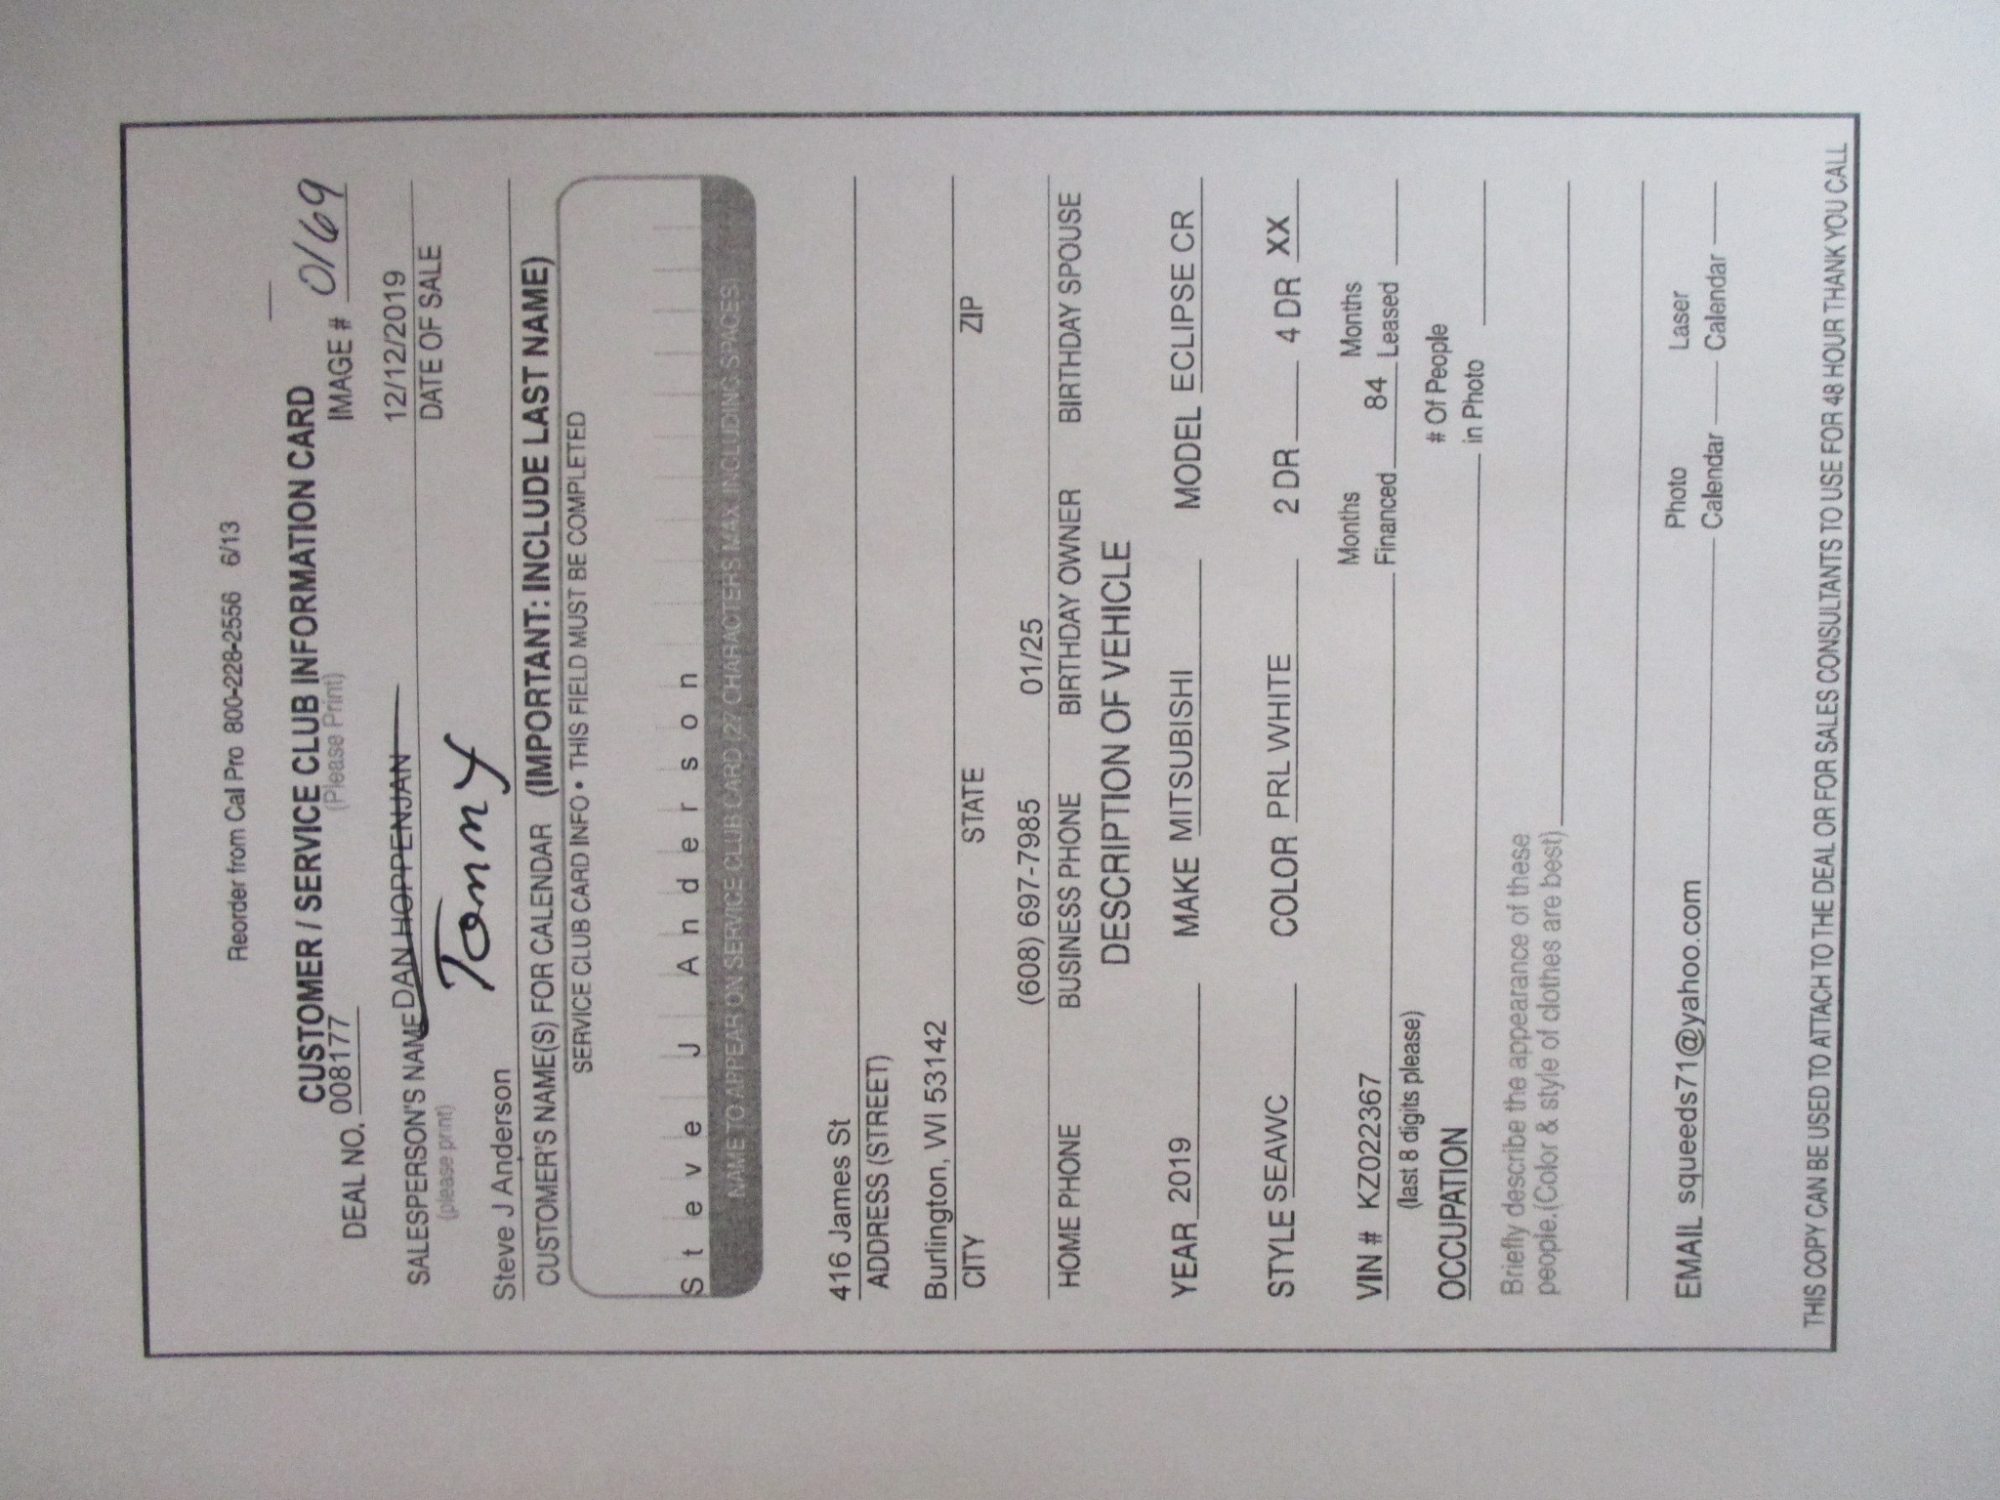 Reorder from Cal Pro 800-228-2556 6/13
CUSTOMER / SERVICE CLUB INFORMATION CARD
(Please Print)
DEAL NO. 008177 IMAGE # 0169
SALESPERSON'S NAME DAN HOPPENJAN 12/12/2019
(please print) Tommy DATE OF SALE
Steve J Anderson
CUSTOMER'S NAME(S) FOR CALENDAR (IMPORTANT: INCLUDE LAST NAME)
SERVICE CLUB CARD INFO • THIS FIELD MUST BE COMPLETED
Steve J Anderson
NAME TO APPEAR ON SERVICE CLUB CARD (27 CHARACTERS MAX INCLUDING SPACES)
416 James St
ADDRESS (STREET)
Burlington, WI 53142
CITY STATE ZIP
(608) 697-7985 01/25
HOME PHONE BUSINESS PHONE BIRTHDAY OWNER BIRTHDAY SPOUSE
DESCRIPTION OF VEHICLE
YEAR 2019 MAKE MITSUBISHI MODEL ECLIPSE CR
STYLE SEAWC COLOR PRL WHITE 2 DR 4 DR XX
VIN # KZ022367 Months Financed 84 Months Leased
(last 8 digits please)
OCCUPATION # Of People in Photo
Briefly describe the appearance of these
people.(Color & style of clothes are best)
EMAIL squeeds71@yahoo.com Photo Calendar Laser Calendar
THIS COPY CAN BE USED TO ATTACH TO THE DEAL OR FOR SALES CONSULTANTS TO USE FOR 48 HOUR THANK YOU CALL